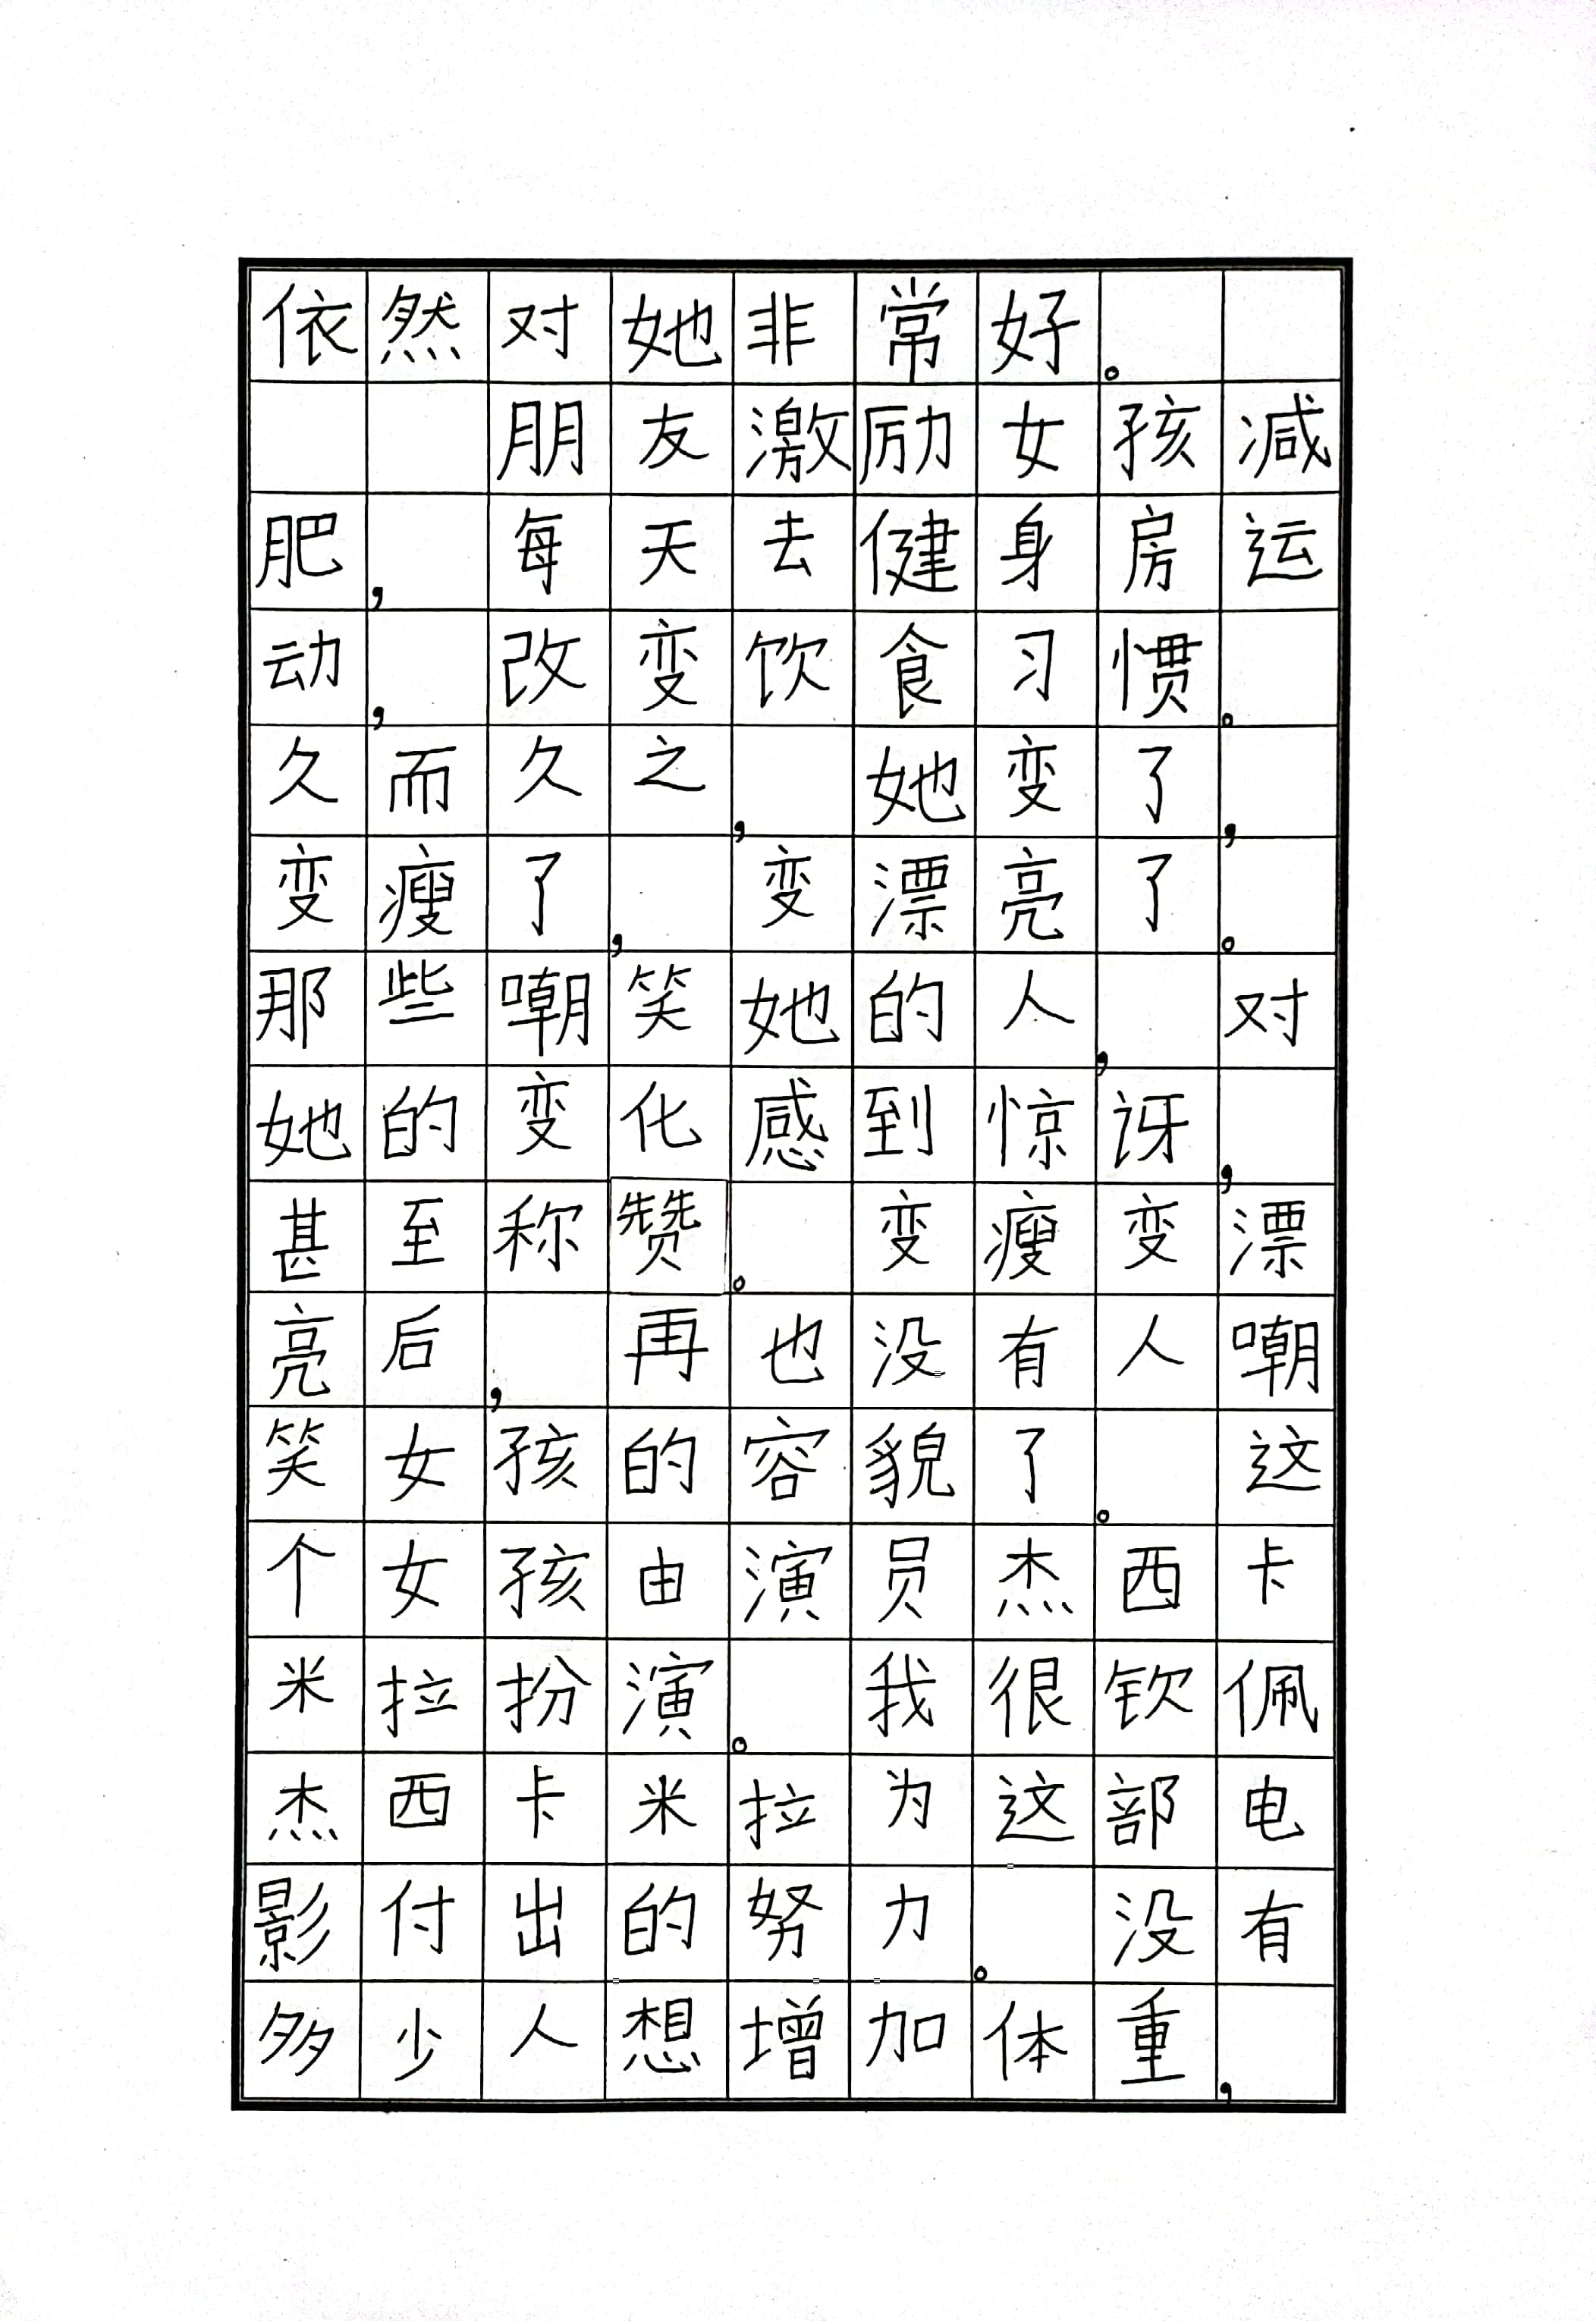 依然对她非常好。
朋友激励女孩减
肥，每天去健身房运
动，改变饮食习惯。
久而久之，她变了，
变瘦了，变漂亮了。
那些嘲笑她的人，对
她的变化感到惊讶，
甚至称赞。变瘦变漂
亮后，再也没有人嘲
笑女孩的容貌了。这
个女孩由演员杰西卡
米拉扮演。我很钦佩
杰西卡米拉为这部电
影付出的努力。没有
多少人想增加体重，